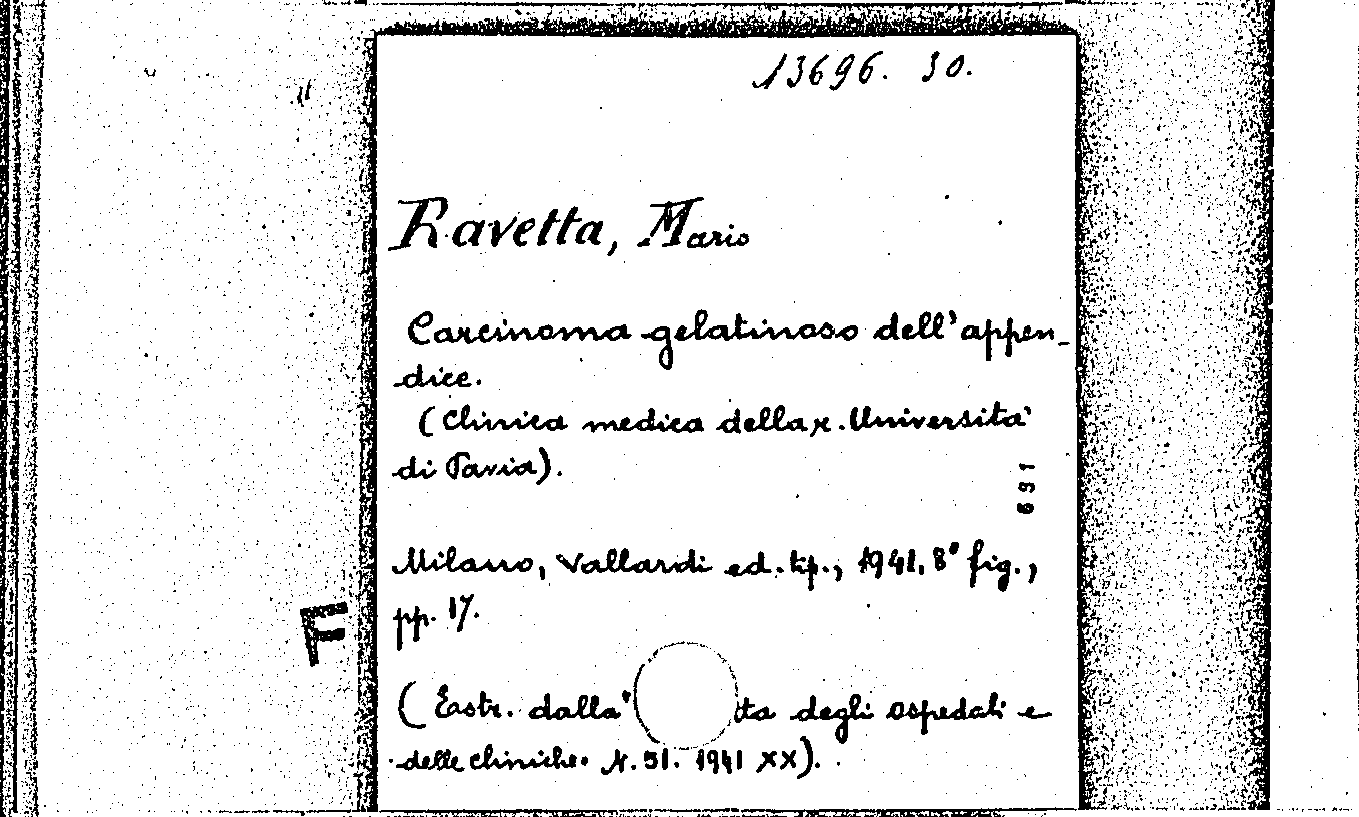 13696. 30.
Ravetta, Mario
Carcinoma gelatinoso dell'appen-
dice.
(Clinica medica della r. Università
di Pavia).
631
Milano, Vallardi ed. tip., 1941, 8° fig.,
pp. 17.
F
(Estr. dalla " ta degli ospedali e
delle cliniche" N. 51. 1941 XX).